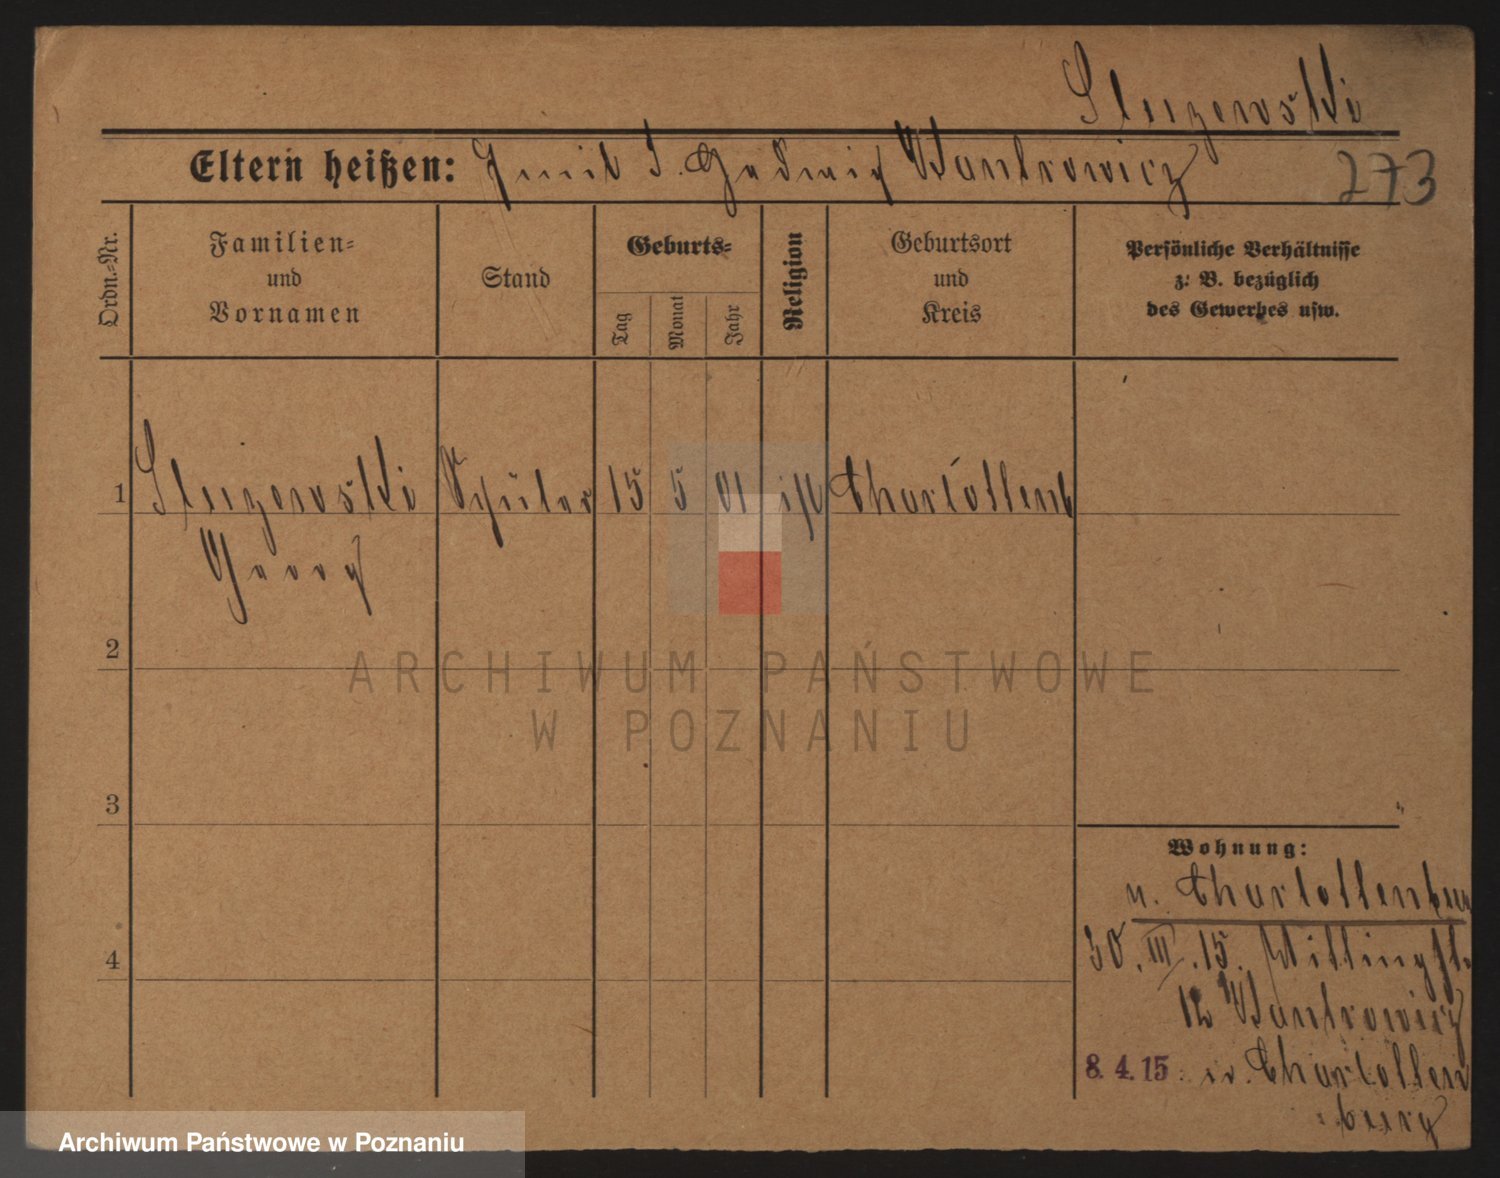 Sluzewski
Eltern heißen: Emil u. Hedwig Kantrowicz
273
Ordn.-Nr.
Familien-
und
Vornamen
Stand
Geburts-
Tag
Monat
Jahr
Religion
Geburtsort
und
Kreis
Persönliche Verhältnisse
z. B. bezüglich
des Gewerbes usw.
1 Sluzewski Schüler 15 5 01 isr Charlottenb
Georg
2
3
4
Wohnung:
v. Charlottenburg
30. III. 15. Wittingstr.
12 Kantrowicz
8. 4. 15 Charlotten
burg
ARCHIWUM PAŃSTWOWE
W POZNANIU
Archiwum Państwowe w Poznaniu